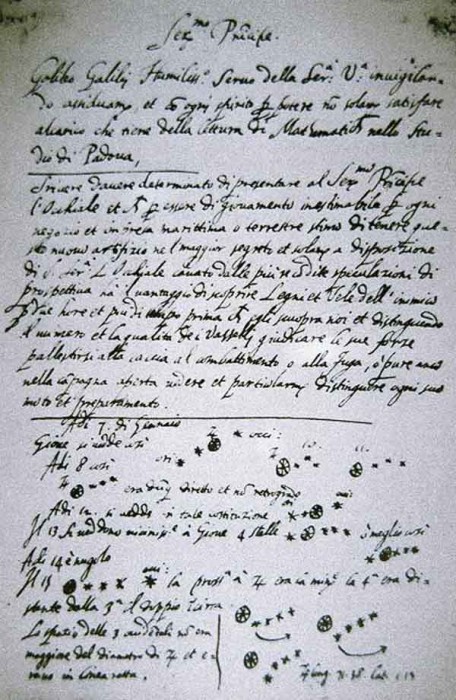 Ser.mo Principe.
Galileo Galilei Humiliss.o Servo della Ser.a V.a invigilan-
do assiduam.te et co ogni spirito p potere no solam satisfare
alcarico che tiene della lettura di Mathematich nello Stu-
dio di Padova,
Scrivere davere determinato di presentare al Ser.mo Principe
l'Occhiale et p essere di giovamento inestimabile p ogni
negozio et impresa marittima o terrestre stimo di tenere que-
sto nuovo artifizio nel maggior segreto et solam a disposizione
di S. Ser.a L Occhiale cavato dalle più recodite speculazioni di
prospettiva ha il vantaggio di scoprire Legni et Vele dell' inimico
p due hore et più di tempo prima ch egli scuopra noi et distinguendo
il numero et la qualità de i Vasselli giudicare le sue forze
pallestirsi alla caccia al combattimento o alla fuga, o pure anco
nella capagna aperta vedere et particolarm distinguere ogni suo
moto et preparamento.
Adi 7. di Gennaio
Gioue si vedde così occi:
Adi 8 così ori 10. 11.
era duq diretto et no retrogrado
Adi 12. si vedde in tale costituzione
Il 13 si veddono vicinis.e à Gioue 4 stelle ò meglio così
Adi 14 è nugolo
Il 15 la pross.a à 4 era la min.e la 4.a era di-
stante dalla 3.a il doppio Circa
Lo spazio delle 3 occidetali no era
maggiore del diametro di 4 et e-
rano in linea retta.